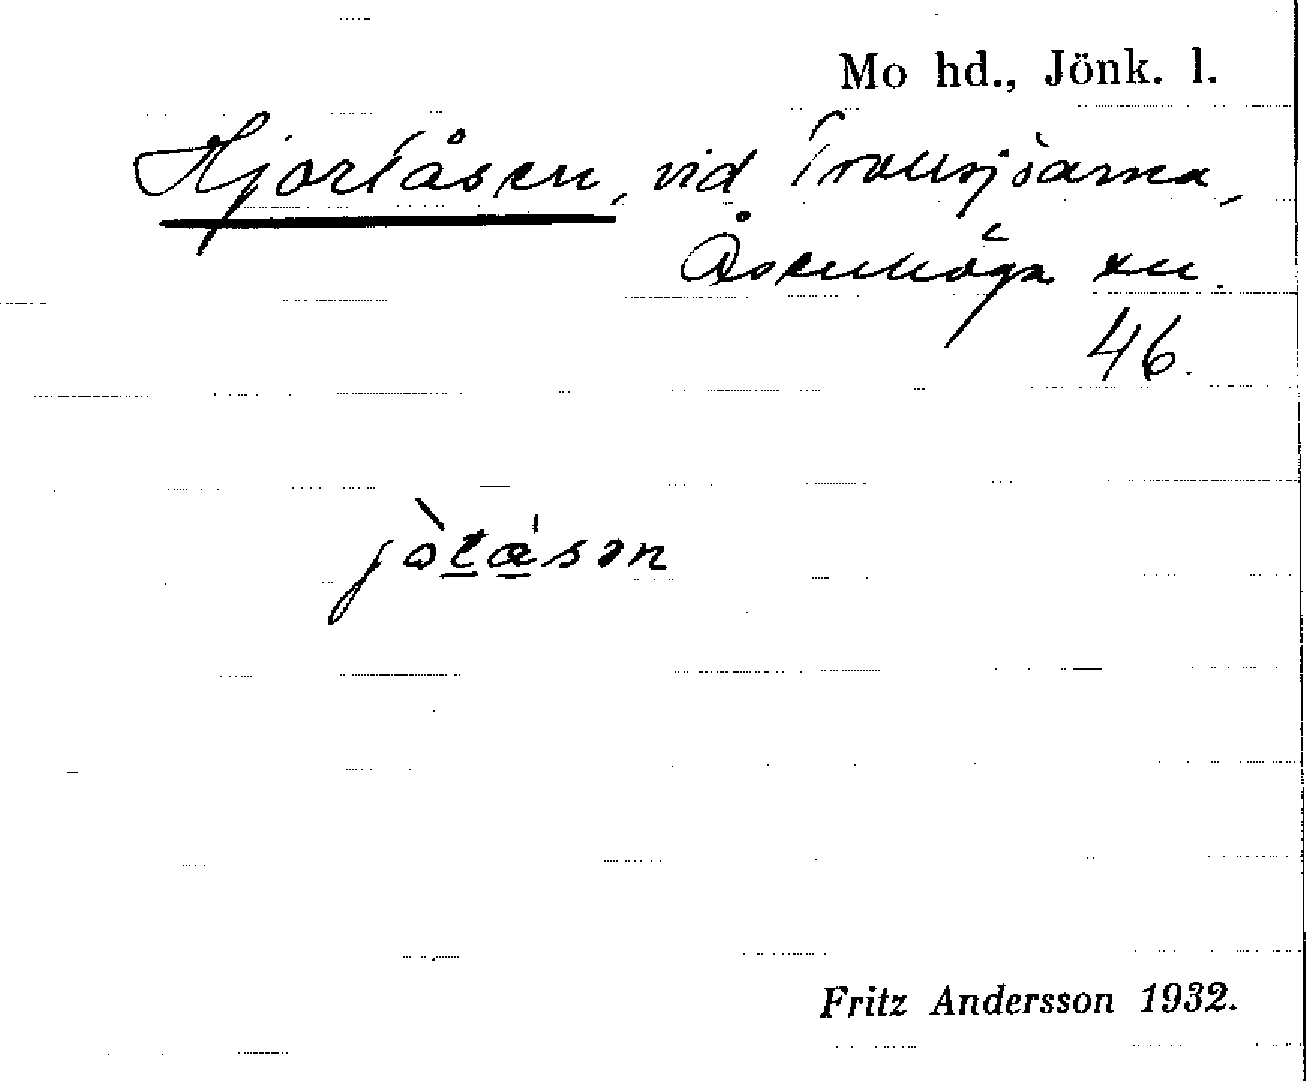 Mo hd., Jönk. l.
Hjortåsen, vid Trollsjöarna,
Åsenhöga sn.
46.
jòtåsən
Fritz Andersson 1932.